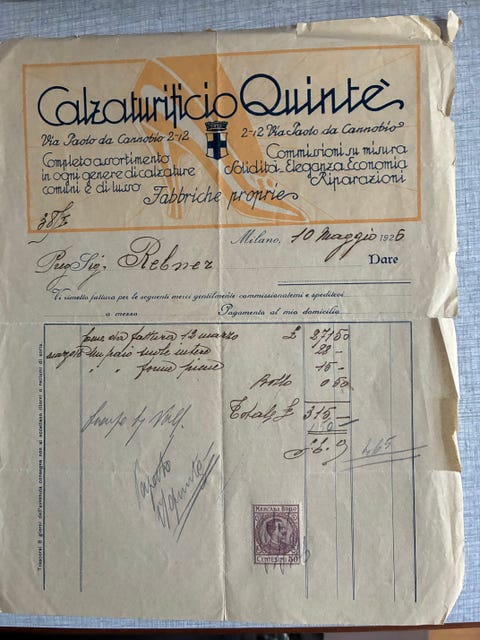 Calzaturificio Quintè
Via Paolo da Cannobio 2-12
2-12 Via Paolo da Cannobio
Completo assortimento
in ogni genere di calzature
comuni e di lusso
Commissioni su misura
Solidità Eleganza Economia
Riparazioni
Fabbriche proprie
Milano, 10 Maggio 1926
Preg. Sig. Rebner
Dare
Vi rimetto fattura per le seguenti merci gentilmente commissionatemi e speditevi
a mezzo Pagamento al mio domicilio
come da fattura 12 marzo £ 271 50
un paio suole intere 28 -
" " forme 15 -
Bollo 0 50
Totale £ 315 -
465
Trascorsi 8 giorni dall'avvenuta consegna non si accettano ritorni o reclami di sorta.
MARCA DA BOLLO
CENTESIMI 50